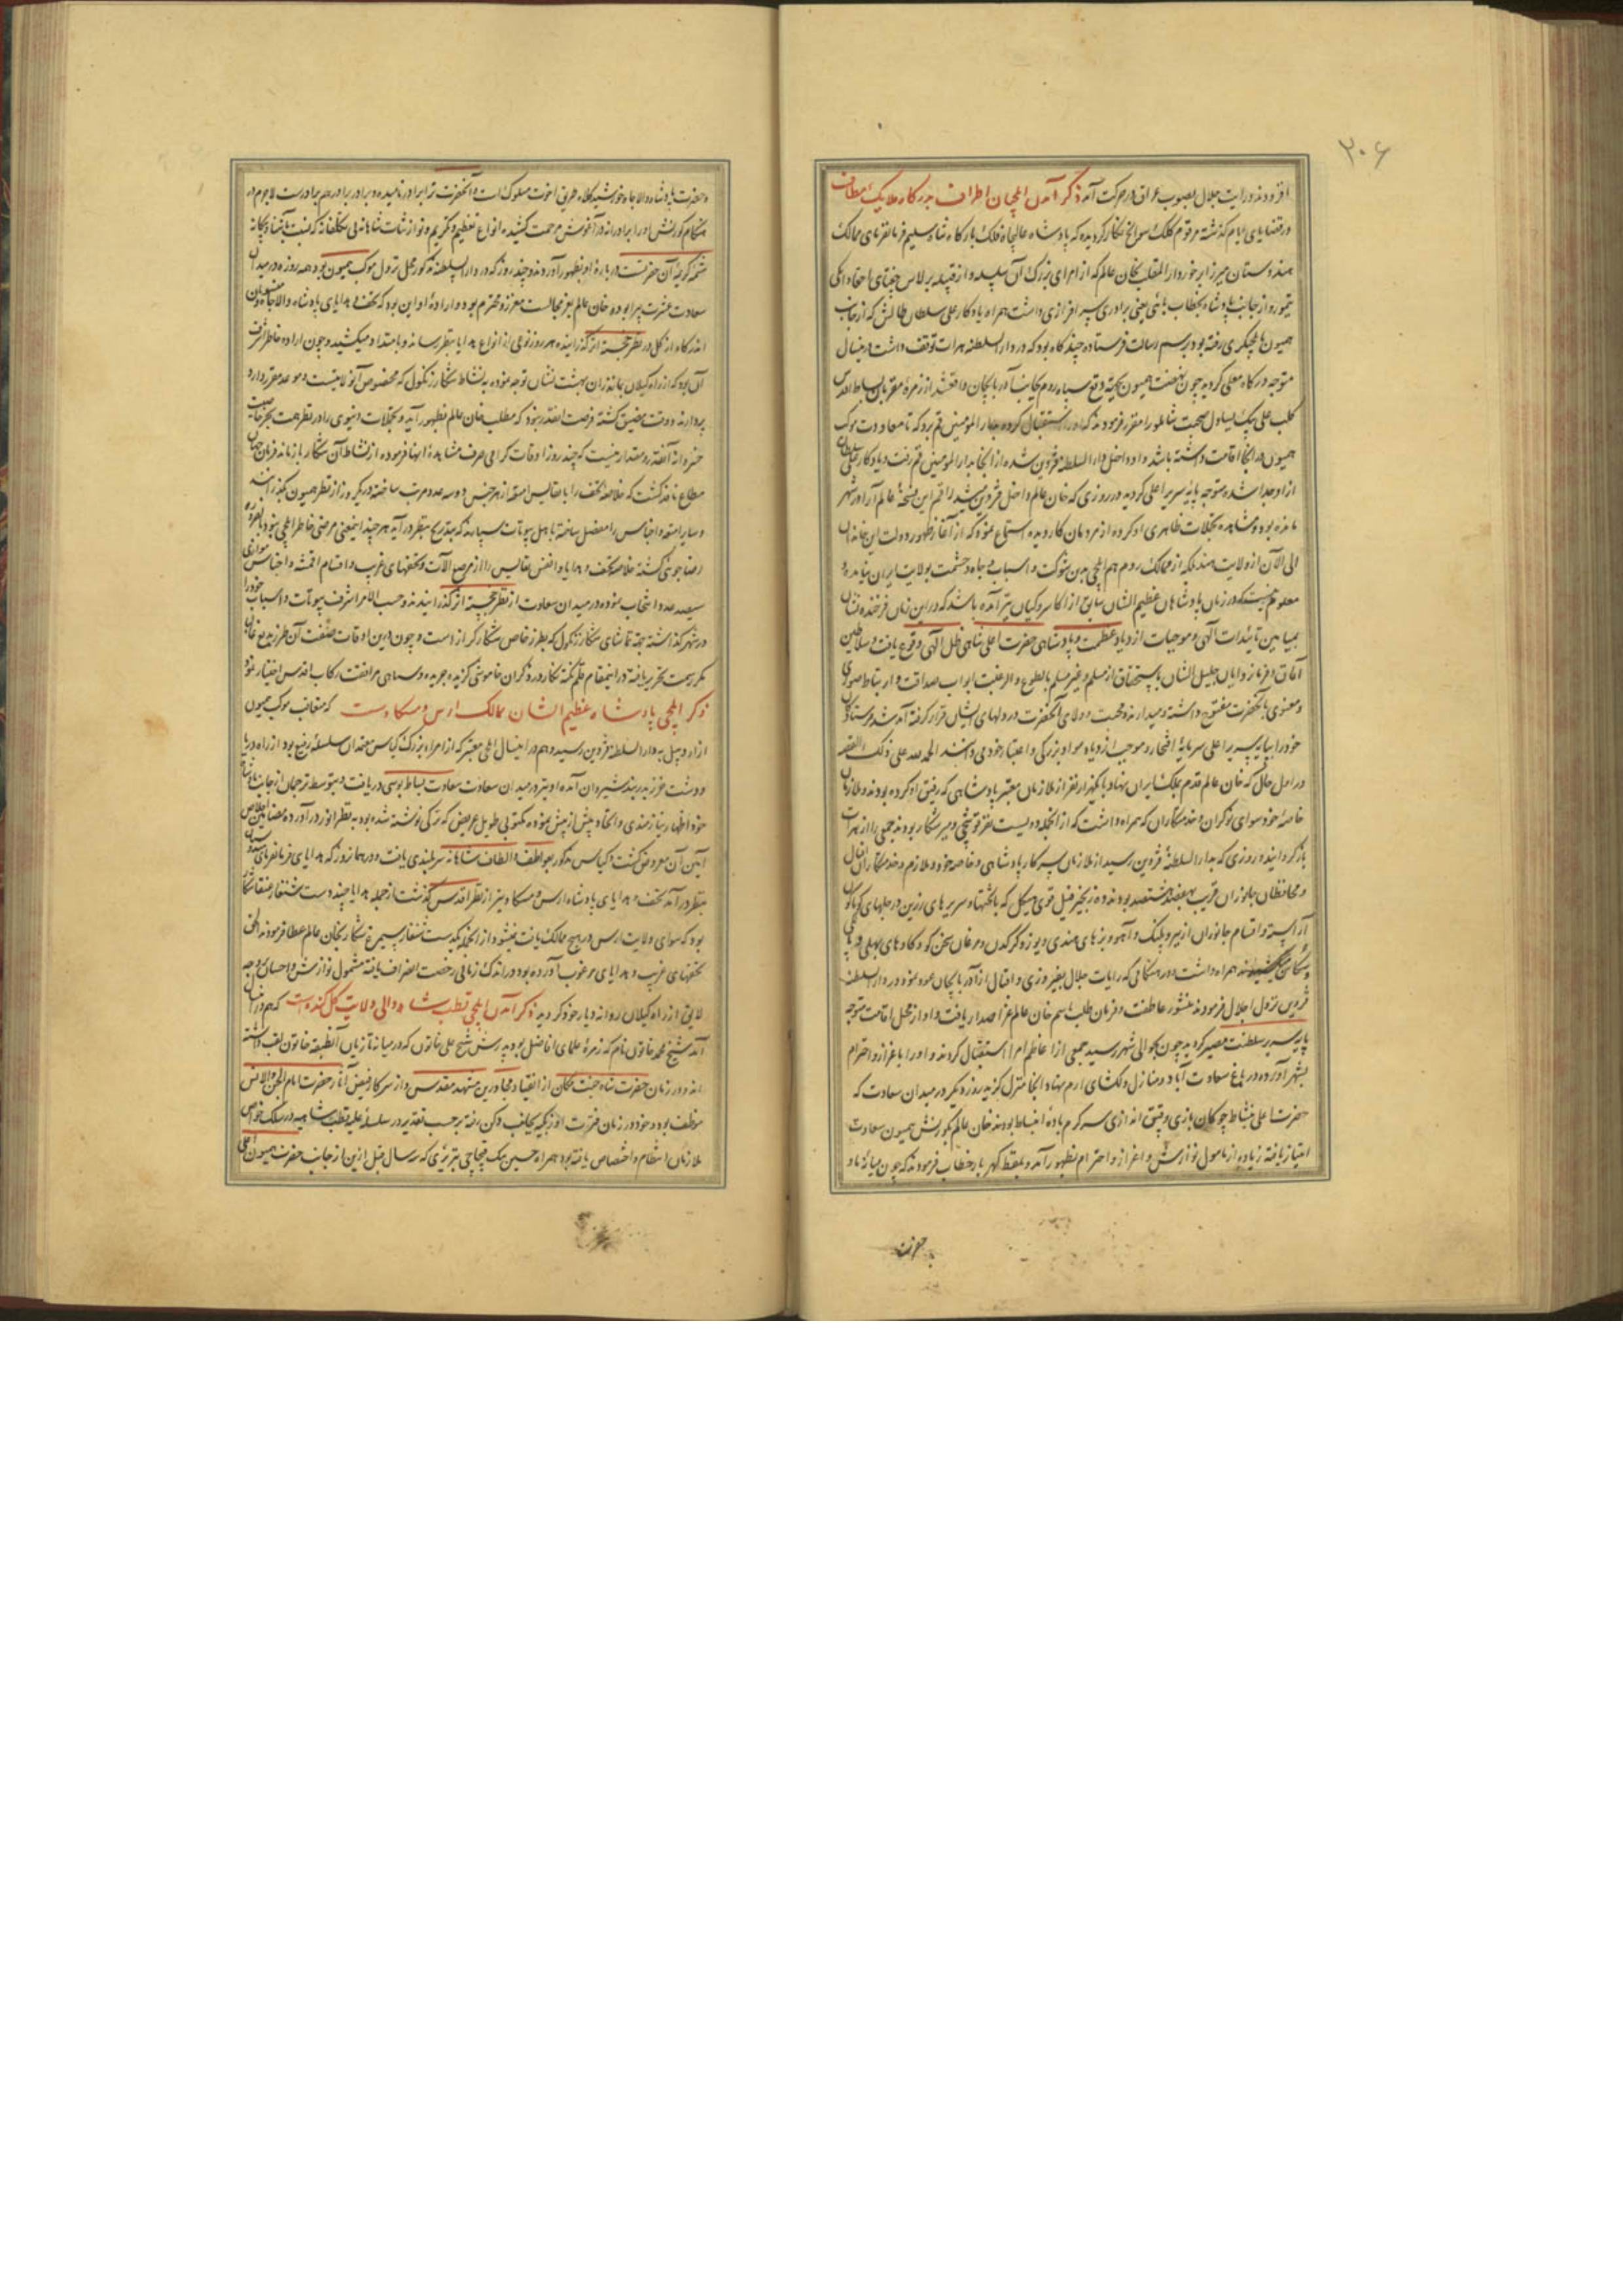 ۳۰۶
افزودند و رایت جلال بصوب عراق در حرکت آمد ذکر آمدن ایلچیان اطراف بدرکاه ملایک مطاف
در قضایای ایام گذشته مرقوم کلک سوانح نگار گردیده که پادشاه عالیجاه فلک بارگاه شاه سلیم فرمانفرمای ممالک
هندوستان میرزا برخوردار الملقب بخان عالم که از امرای بزرگ آن سلسله و از قبیله برلاس جغتای
تیمور و از جانب پادشاه بخطاب یعنی برادری سرافرازی داشت همراه یادکار علی سلطان طالش که از جانب
همیون بایلچیگری رفته بود برسم رسالت فرستاده چند گاه بود که در دار السلطنه هرات توقف داشت درینسال
متوجه درگاه معلی گردید چون نهضت همیون بجهة دفع سپاه روم بجانب آذربایجان واقع شد از زمره مقربان بساط اقدس
کلب علی بیک یساول صحبت شاملو را مقرر فرمودند که او را استقبال کرده بدار المومنین قم برد که تا معاودت موکب
همیون در آنجا اقامت داشته باشد و او داخل دار السلطنه قزوین شده از آنجا بدار المومنین قم رفت و یادکار علی سلطان
از او جدا شده متوجه پایه سریر اعلی گردید در روزی که خان عالم داخل قزوین میشد راقم این نسخه عالم آرا در شهر
مانده بود و مشاهده تجملات ظاهری او کرده از مردمان کار دیده استماع نمود که از آغاز ظهور دولت این خاندان
الی الآن از ولایت هند بلکه از ممالک روم هم ایلچی بدین شوکت و اسباب و جاه و حشمت بولایت ایران نیامده و
معلوم نیست که در زمان پادشاهان عظیم الشان سابق از اکاسره و کیان نیز آمده باشد که در این زمان فرخنده نشان
بمیامن تائیدات الهی و موجبات ازدیاد عظمت و پادشاهی حضرت اعلی شاهی ظل الهی وقوع یافت و سلاطین
آفاق و فرمانروایان جلیل الشان باستحقاق از مسلم و غیر مسلم بالطوع و الرغبت ابواب صداقت و ارتباط صوری
و معنوی با آنحضرت مفتوح داشته و میدارند و محبت و ولای آنحضرت در دلهای ایشان قرار گرفته آمد شد فرستادگان
خود را بپایه سریر اعلی سرمایه افتخار و موجب ازدیاد مواد بزرگی و اعتبار خود می دانند الحمد لله علی ذلک القصه
در اول حال که خان عالم قدم بملک ایران نهاد با یکهزار نفر از ملازمان معتبر پادشاهی که رفیق او کرده بودند و ملازمان
خاصه خود سوای نوکران و خدمتکاران که همراه داشت که از آنجمله دویست نفر قوشچی و میرشکار بودند جمعی را از هرات
بازگردانید و روزی که بدار السلطنه قزوین رسید از ملازمان سرکار پادشاهی و خاصه خود و ملازم و خدمتکاران فیلان
و محافظان جانوران قریب بهفتصد هشتصد بودند و ده زنجیر فیل قوی هیکل که با تختها و سریرهای زرین و جلهای گوناگون
آراسته و اقسام جانوران از ببر و پلنگ و آهو و بزهای هندی و یوز و کرگدن و مرغان سخن گو و گاوهای بهلی
همراه داشت و در هنگامی که رایات جلال بفیروزی و اقبال از آذربایجان عود نموده در دار السلطنه
قزوین نزول اجلال فرمودند منشور عاطفت و فرمان طلب باسم خان عالم عز اصدار یافت و او از محل اقامت متوجه
پایه سریر سلطنت مصیر گردید چون بحوالی شهر رسید جمعی از اعاظم امرا استقبال کردند و او را باعزاز و احترام
بشهر آورده در باغ سعادت آباد و منازل دلگشای ارم بنیاد آنجا منزل گزید روز دیگر در میدان سعادت که
حضرت اعلی بنشاط چوگان بازی و قپق اندازی سرگرم باده انبساط بودند خان عالم بکورنش همیون سعادت
امتیاز یافته زیاده از مامول نوازش و اعزاز و احترام بظهور آمد و بلفظ گهربار خطاب فرمودند که چون میانه ما و
حضرت
حضرت پادشاه والا جاه خورشید کلاه طریق اخوت مسلوک است و آنحضرت ترا برادر نامیده و برادر برادر هم برادرست لاجرم در
هنگام کورنش او را برادرانه در آغوش مرحمت کشیده انواع تعظیم و تکریم و نوازشات شاهانه بی تکلفانه که نسبت بآشنا و بیگانه
شیمه کریمه آن حضرتست در باره او بظهور آوردند و چند روز که در دار السلطنه مذکور محل نزول موکب همیون بود همه روزه در میدان
سعادت عشرت پیرا بوده خان عالم بعز مجالست معزز و محترم بود و اراده او این بود که تحف و هدایای پادشاه والا جاه
اندک اندک از نظر خجسته اثر گذرانیده هر روز نوعی از انواع هدایا بنظر رساند و بامتداد میکشید و چون اراده خاطر اشرف
آن بود که از راه گیلان بمازندران بهشت نشان توجه نموده به نشاط شکار زنگول که مخصوص آنولایتست و موعد مقرر دارد
پردازند و وقت مضیق گشته فرصت آنقدر نبود که مطلب خان عالم بظهور آید و تجملات دنیوی را در نظر همت
خسروانه آنقدر مقدار نیست که چند روز اوقات گرامی صرف مشاهده آنها فرموده از نشاط آن شکار باز مانند فرمان جهان
مطاع نافذ گشت که خلاصه تحف را با نفایس امتعه از هر جنس دو سه عدد مرتب ساخته در یک روز از نظر همیون بگذرانند
و سایر امتعه و اجناس را مفصل ساخته باهل بیوتات سپارند که بتدریج بنظر در آید هر چند اینمعنی مرضی خاطر ایلچی نبود بالضروره
رضا جوئی گشته خلاصه تحف و هدایا و انفس نفایس را از مرصع آلات و تحفهای غریب و اقسام اقمشه و اجناس موازی
سیصد عدد انتخاب نموده در میدان سعادت از نظر خجسته اثر گذرانیدند و حسب الامر اشرف بیوتات و اسباب خود را
در شهر گذاشته بجهة تماشای شکار زنگول که بطرز خاص شکار گراز است و چون درین اوقات صفت آن طرز بدیع
مکرر سمت تحریر یافته در اینمقام قلم نکته نگار در ذکر آن خاموشی گزیده جریده و سپاهی مرافقت رکاب اقدس اختیار نمود
ذکر ایلچی پادشاه عظیم الشان ممالک اروس و مسکاو است که متعاقب موکب همیون
از اردبیل بدار السلطنه قزوین رسید و هم در اینسال ایلچی معتبر که از امراء بزرگ کیاس معتمدان سلسله رفیع بود از راه دریا
و دشت خزر بدربند شیروان آمده او نیز در میدان سعادت سعادت بساط بوسی دریافت و بتوسط ترجمان از جانب پادشاه
خود اظهار نیازمندی و اتحاد بیش از پیش نموده مکتوبی طویل عریض که بترکی نوشته شده بود به نظر انور در آورده مضامین اخلاص
آیین آن معروض گشت و کیاس مذکور بعواطف و الطاف شاهانه سربلندی یافت و در همانروز که هدایای فرمانفرمای هند
بنظر در آمد تحف و هدایای پادشاه اروس و مسکاو نیز از نظر اقدس گذشت از جمله هدایا چند دست شنقار
بود که سوای ولایت اروس در هیچ ممالک یافت نمیشود از آنجمله یکدست شنقار سیمرغ شکار بخان عالم عطا فرمودند
تحفهای غریب و هدایای مرغوب آورده بود در اندک زمانی رخصت انصراف یافته مشمول نوازش و احسان
لایق از راه گیلان روانه دیار خود گردید ذکر آمدن ایلچی قطب شاه والی ولایت گل کنده است که هم در اینسال
آمد شیخ محمد خاتون نام که زمره علمای افاضل بود پدرش شیخ علی خاتون که در میانه تازیان آنطبقه خاتون لقب داشته
اند و در زمان حضرت شاه جنت مکان از اتقیا و مجاورین مشهد مقدس و از سرکار فیض آثار حضرت امام الجن و الانس
موظف بود و خود در زمان فترت اوزبکیه بجانب دکن رفته بر حسب تقدیر در سلسله علیه قطب شاهیه در سلک خواص
ملازمان انتظام و اختصاص یافته بود همراه حسین بیک قیچاچی تبریزی که در سال قبل ازین از جانب حضرت همیون اعلی